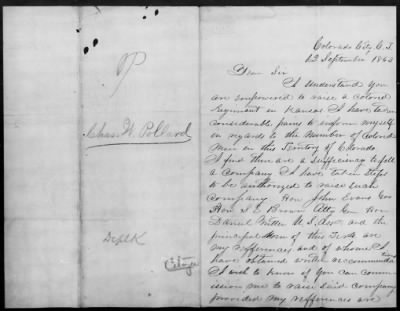 Chas. W. Pollard
Colorado City, C. T.
12 September 1863
Dear Sir
I Understand you
are empowered to raise a colored
Regiment in Kansas I have taken
considerable pains to inform myself
in regards to the Number of Colored
Men in this Territory of Colorado
I find there are a sufficiency to fill
a Company I have taken steps
to be authorized to raise such
Company Hon John Evans Gov
Hon S. E. Brown Atty Gen Hon
Daniel Witter U. S. and the
principal Men of this Terr are
my refferences and of whom I
have obtained written recommendations
I wish to know if you can comm-
ission me to raise said Company
provided my refferences are